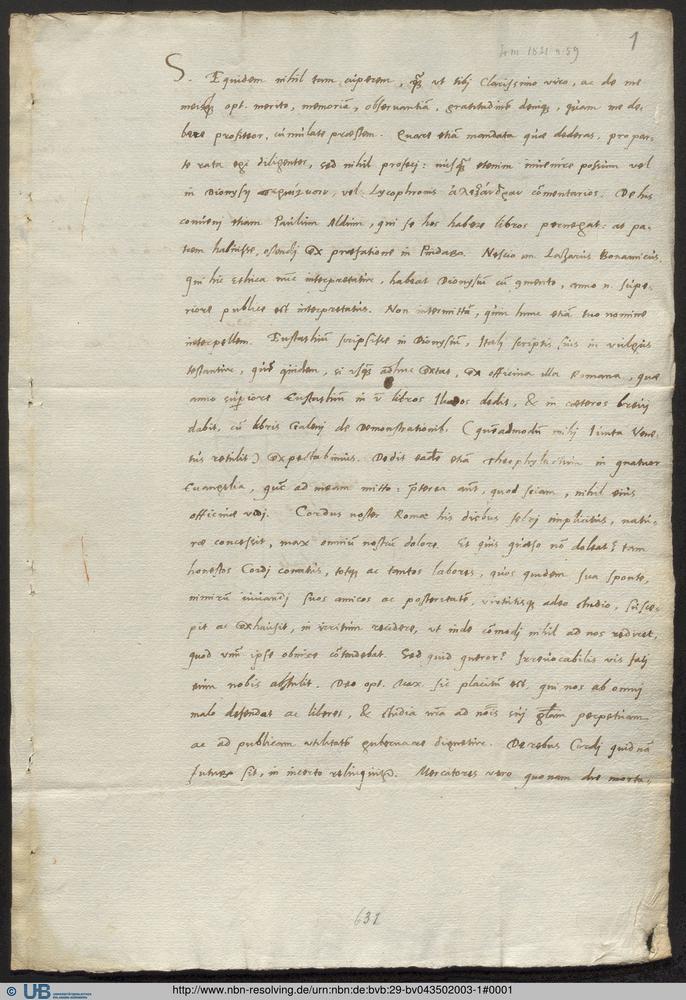 1
S. Equidem nihil tam cuperem, quam ut tibj Clarissimo viro, ac de me
meisque opt. merito, memoriã, observantiã, gratitudinẽ deniq, quam me de-
bere profiteor, cumulate præstem. Quare etiã mandata quæ dederas, pro par-
te rata egi diligenter, sed nihil profecj: nusq̃ etenim invenire possum vel
in Dionysij vel Lycophronis cõmentarios. De his
conveni etiam Paulum Aldum, qui se hos habere libros pernegat: at pa-
trem habuisse, ostendj ex præfatione in Pindaro. Nescio an Lazarus Bonamicus,
qui hic Ethica nũc interpretatur, habeat Dionysiũ cũ cmento, anno n. supe-
riore publice est interpretatus. Non intermittã, quin hunc etiã tuo nomine
interpellem. Eustathiũ scripsisse in Dionysiũ, Italj scriptis suis in vulgus
testantur, quẽ quidem, si usq adhuc extat, ex officina illa Romana, quæ
anno superiore Eustathiũ in v libros Iliados dedit, & in cæteros brevj
dabit, cũ libris Galenj de Demonstrationib. (quẽadmodũ mihj Iunta Vene-
tus retulit) expectabimus. Dedit eadẽ etiã Theophylactum in quatuor
Euangelia, quẽ ad meam mitto: p̃terea aũt, quod sciam, nihil eius
officinæ vidj. Cordus noster Romæ his diebus febrj implicitus, natu-
ræ concessit, max omniũ nostrũ dolore. Et quis quæso nõ doleat? tam
honestos Cordj conatus, totq ac tantos labores, quos quidem sua sponte,
nimirũ iuuandj suos amicos ac posteritatẽ, virtutisq adeo studio, susce-
pit ac exhausit, in irritum recidere, ut inde cõmodj nihil ad nos rediret,
quod unũ ipse obnixe cõtendebat. Sed quid queror? Irreuocabilis vis fatj
eum nobis abstulit. Deo opt. Max. sic placitũ est, qui nos ab omnj
malo defendat ac liberet, & studia nr̃a ad nõis suj gl̃am perpetuam
ac ad publicam utilitatẽ gubernare dignetur. De rebus Cordj quidnã
futurũ sit, in incerto relinquit. Mercatores vero quonam die mortu-
631
UB
http://www.nbn-resolving.de/urn:nbn:de:bvb:29-bv043502003-1#0001